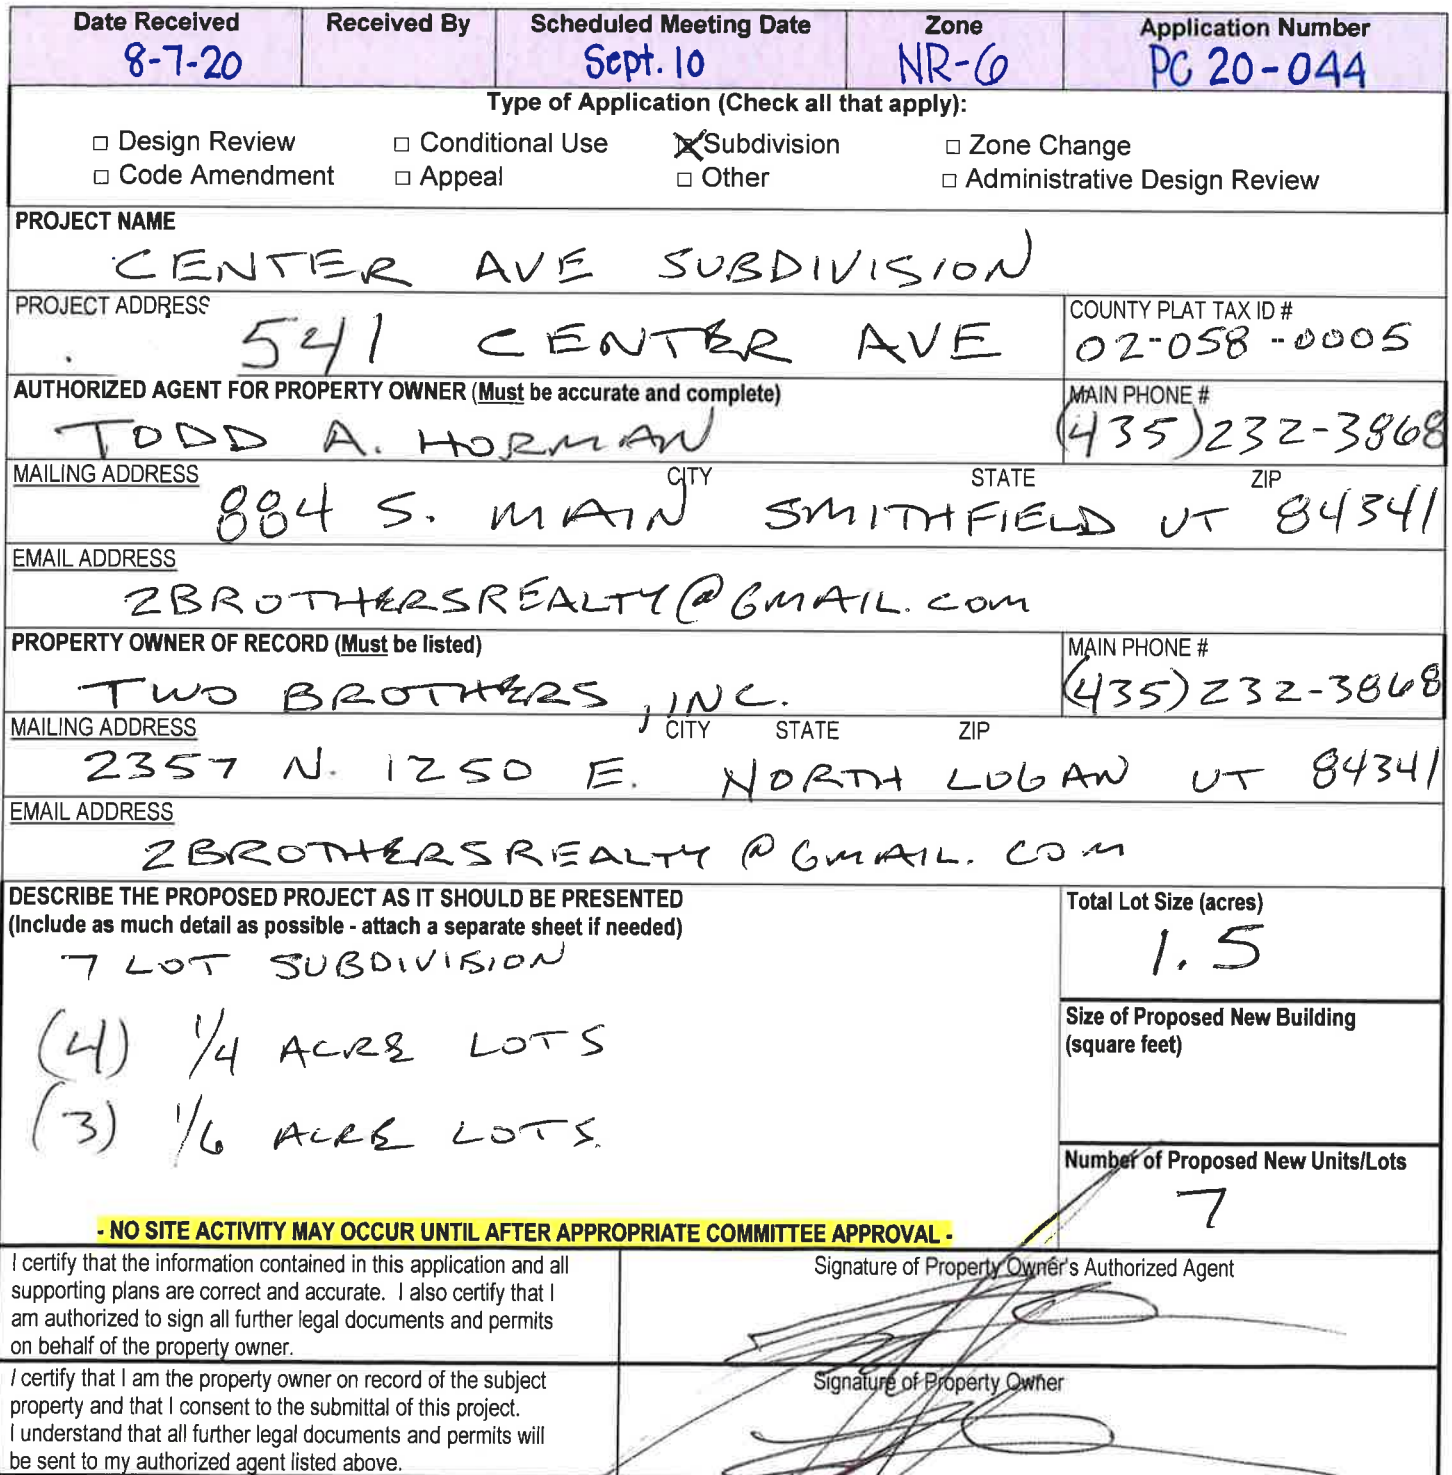 Date Received Received By Scheduled Meeting Date Zone Application Number
8-7-20 Sept. 10 NR-6 PC 20-044
Type of Application (Check all that apply):
□ Design Review □ Conditional Use ☒ Subdivision □ Zone Change
□ Code Amendment □ Appeal □ Other □ Administrative Design Review
PROJECT NAME
CENTER AVE SUBDIVISION
PROJECT ADDRESS COUNTY PLAT TAX ID #
541 CENTER AVE 02-058-0005
AUTHORIZED AGENT FOR PROPERTY OWNER (Must be accurate and complete) MAIN PHONE #
TODD A. HORMAN (435)232-3868
MAILING ADDRESS CITY STATE ZIP
884 S. MAIN SMITHFIELD UT 84341
EMAIL ADDRESS
2BROTHERSREALTY@GMAIL.COM
PROPERTY OWNER OF RECORD (Must be listed) MAIN PHONE #
TWO BROTHERS, INC. (435)232-3868
MAILING ADDRESS CITY STATE ZIP
2357 N. 1250 E. NORTH LOGAN UT 84341
EMAIL ADDRESS
2BROTHERSREALTY@GMAIL.COM
DESCRIBE THE PROPOSED PROJECT AS IT SHOULD BE PRESENTED
(Include as much detail as possible - attach a separate sheet if needed)
7 LOT SUBDIVISION
(4) 1/4 ACRE LOTS
(3) 1/6 ACRE LOTS
Total Lot Size (acres)
1.5
Size of Proposed New Building
(square feet)
Number of Proposed New Units/Lots
7
- NO SITE ACTIVITY MAY OCCUR UNTIL AFTER APPROPRIATE COMMITTEE APPROVAL -
I certify that the information contained in this application and all
supporting plans are correct and accurate. I also certify that I
am authorized to sign all further legal documents and permits
on behalf of the property owner.
Signature of Property Owner's Authorized Agent
I certify that I am the property owner on record of the subject
property and that I consent to the submittal of this project.
I understand that all further legal documents and permits will
be sent to my authorized agent listed above.
Signature of Property Owner